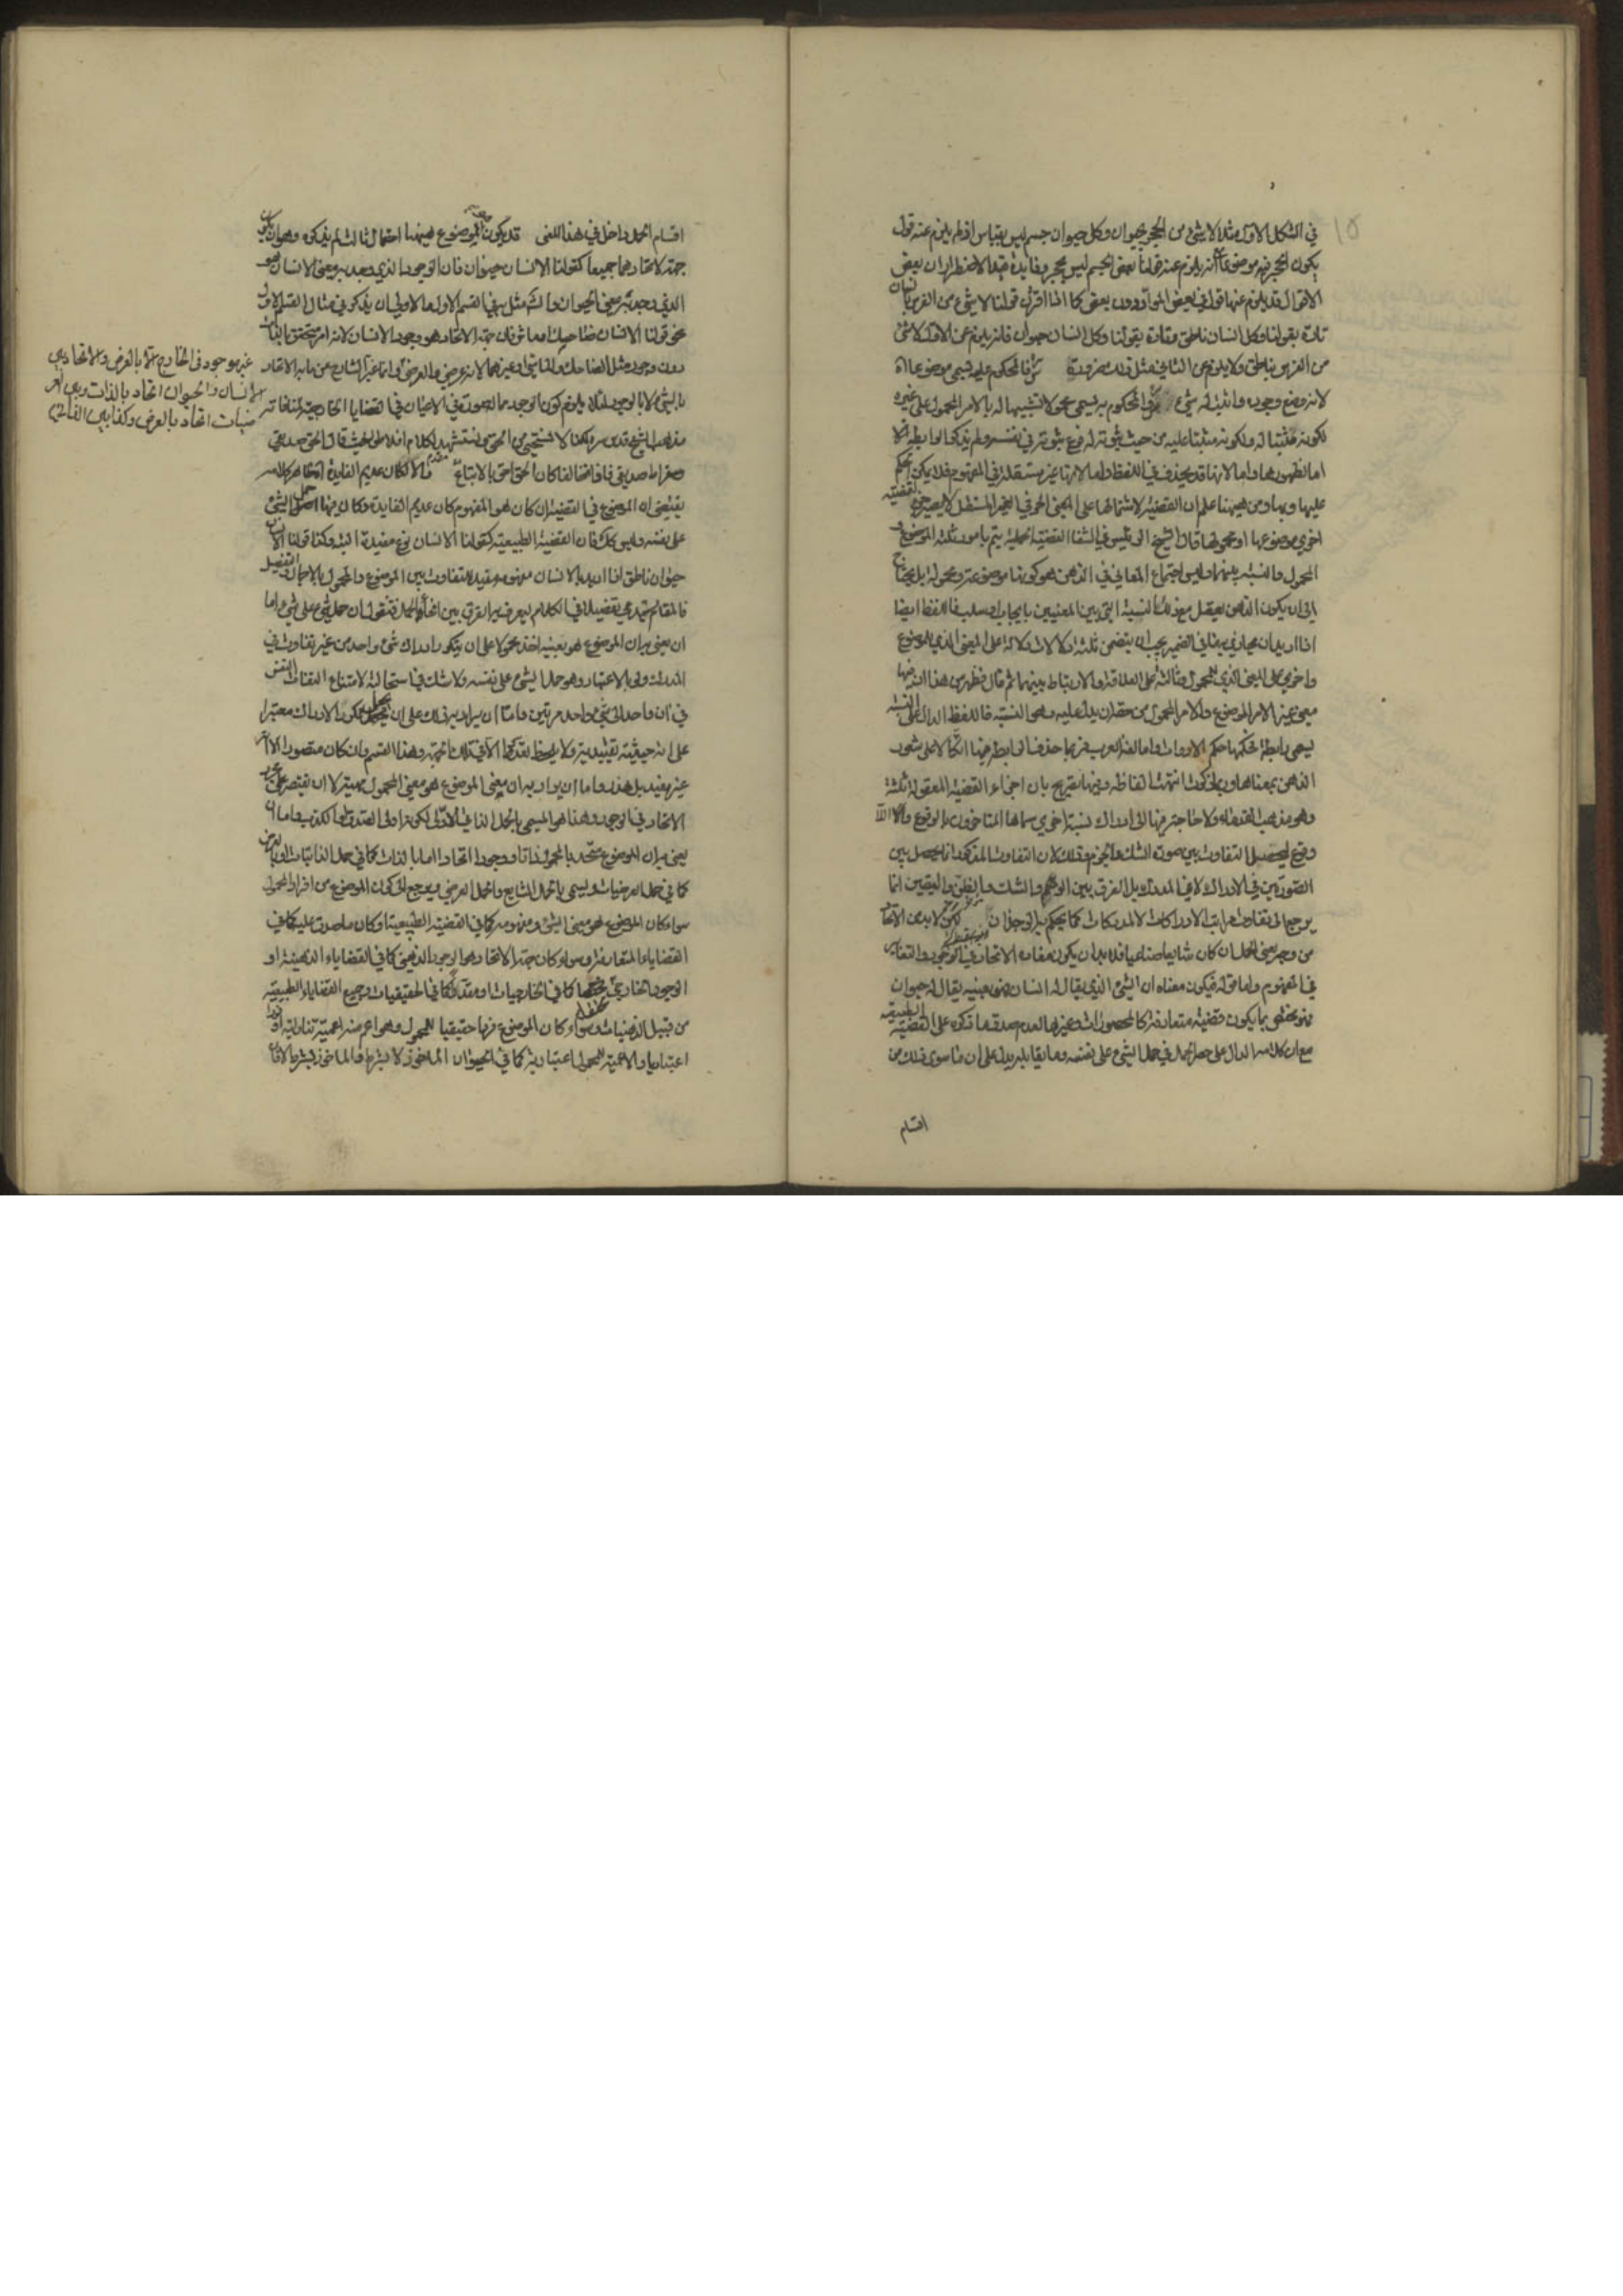 في الشكل الاول مثلا لا شئ من الحجر بحيوان وكل حيوان جسم ليس بقياس اذ لم يلزم عنه قول
يكون الحجر فيه موضوعا مع انه يلزم عنه قولنا بعض الجسم ليس بحجر وفايدة قيد الاضطرار ان بعض
الاقوال قد يلزم عنها قول في بعض المواد دون بعض كما اذا اقترن قولنا لا شئ من الفرس بانسان
تارة بقولنا وكل انسان ناطق وتارة بقولنا وكل انسان حيوان فانه يلزم عن الاول لا شئ
من الفرس بناطق ولا يلزم عن الثاني مثل ذلك ضرورة فالمحكوم عليه يسمى موضوعا
لانه وضع وجوده واثبت له شئ والمحكوم به يسمى محمولا لتشبيهه له بالامر المحمول على غيره
لكونه مثبتا له ولكونه مثبتا عليه من حيث ثبوته له فرع ثبوته في نفسه ولم يذكر الرابطة
اما لظهورها واما لانها قد يحذف في اللفظ واما لانها غير مستقلة في المفهوم فلا يمكن الحكم
عليها وبها ومن ههنا علم ان القضية لاشتمالها على المعنى الحرفي الغير المستقل لا يصير جزء لقضية
اخرى موضوعها او محمولها قال الشيخ الرئيس في الشفا القضية الحملية يتم بامور ثلثة الموضوع و
المحمول والنسبة بينهما وليس اجتماع المعاني في الذهن هو كونها موضوعة ومحمولة بل يحتاج
الى ان يكون الذهن يعقل مع ذلك النسبة التي بين المعنيين بايجاب او سلب فاللفظ ايضا
اذا اريد ان يحاذي به ما في الضمير يجب ان يتضمن ثلثة دلالات دلالة على المعنى الذي للموضوع
واخرى على المعنى الذي للمحمول وثالثة على العلاقة والارتباط بينهما ثم قال فظهر من هذا ان ههنا
معنى غير الامر الموضوع والامر المحمول من حقه ان يدل عليه وهي النسبة فاللفظ الدال على النسبة
يسمى رابطة حكمها حكم الادوات واما لغة العرب فربما حذفت الرابطة فيها اتكالا على شعور
الذهن بمعناها وربما ذكرت انتهت الفاظه وفيها تصريح بان اجزاء القضية المعقولة ثلثة
وهو مذهب القدماء ولا حاجة فيها الى ادراك نسبة اخرى سماها المتاخرون بالوقوع واللا
وقوع لتحصيل التفاوت بين صورة الشك والجزم وذلك لان التفاوت المذكور انما يحصل بين
الصورتين في الادراك لا في المدرك بل الفرق بين الوهم والشك والظن واليقين انما
يرجع الى تفاوت مراتب الادراكات لا المدركات كما يحكم به الوجدان لكن لا بد من الاتحاد
من وجه يعني الحمل ان كان شايعا صناعيا فلا بد ان يكون مفاده الاتحاد في الوجود والتغاير
في المفهوم واما قوله فيكون معناه ان الشئ الذي يقال له انسان هو بعينه يقال له حيوان
فهو مختص بما يكون قضية متعارفة كالمحصورات وغيرها لعدم صدق ما ذكره على القضية الطبيعية
مع ان كلامه الدال على حصر الحمل في حمل الشئ على نفسه وما يقابله يدل على ان ما سوى ذلك من
اقسام
اقسام الحمل داخل في هذا المعنى قد يكون الموضوع ههنا احتمال ثالث لم يذكره وهو ان يكون
جهة الاتحاد هما جميعا كقولنا الانسان حيوان فان الوجود الذي وجد به معنى الانسان هو
الذي وجد به معنى الحيوان والشه مثل به في القسم الاول والاولى ان يذكر في مثال القسم الاول
نحو قولنا الانسان ضاحك او ماش فان جهة الاتحاد هو وجود الانسان لانه امر متحقق بالذات
دون وجود مثل الضاحك والماشي وغيرهما لانه عرضي والعرضي وانما عبر الشارح عن ما به الاتحاد
بالشئ لا بالوجود لئلا يلزم كون الوجود مما له صورة في الاعيان في القضايا الخارجية لمنافاته
مذهب الشيخ قدس سره لكنا لا نستحيي من الحق ونستشهد بكلام افلاطن حيث قال الحق صديقي
وسقراط صديقي فاذا تخالفا كان الحق احق بالاتباع والا لكان عديم الفايدة ظاهر كلامه
يقتضي ان الموضوع في القضية ان كان هو المفهوم كان عديم الفايدة وكان فيها حمل الشئ
على نفسه وليس كذلك فان القضية الطبيعية كقولنا الانسان نوع مفيدة البتة وكذا قولنا الانسان
حيوان ناطق اذا اريد بالانسان مفهومه مفيد للتفاوت بين الموضوع والمحمول بالاجمال والتفصيل
فالمقام يستدعي تفصيلا في الكلام ليعرف به الفرق بين انحاء الحمل فنقول ان حمل شئ على شئ اما
ان يعنى به ان الموضوع هو بعينه اخذ محمولا على ان يتكرر ادراك شئ واحد من غير تفاوت في
المدرك ولو بالاعتبار وهو حمل الشئ على نفسه ولا شك في استحالته لامتناع التفات النفس
في آن واحد الى شئ واحد مرتين واما ان يراد به ذلك على ان يجعل تكرر الادراك معتبرا
على انه حيثية تقييدية ولا يلحظ تعدد الا من تلك الجهة وهذا القسم وان كان متصورا الا انه
غير مفيد بل هذر واما ان يراد به ان معنى الموضوع هو معنى المحمول مهية لا ان يقتصر على مجرد
الاتحاد في الوجود وهذا هو المسمى بالحمل الذاتي الاولي لكونه اولى الصدق او الكذب واما ان
يعنى به ان الموضوع متحد بالمحمول ذاتا ووجودا اتحادا اما بالذات كما في حمل الذاتيات او بالعرض
كما في حمل العرضيات ويسمى بالحمل الشايع والحمل العرضي ويرجع الى كون الموضوع من افراد المحمول
سواء كان الموضوع هو معنى الشئ ومفهومه كما في القضية الطبيعية او كان ما صدق عليه كما في
القضايا المتعارفة وسواء كان جهة الاتحاد هو الوجود الذهني كما في القضايا الذهنية او
الوجود الخارجي محققا كما في الخارجيات او مقدرا كما في الحقيقيات وجميع القضايا الطبيعية
من قبيل الذهنيات وسواء كان الموضوع فردا حقيقيا للمحمول وهو اعم منه اعمية تناولية او فردا
اعتباريا والاعمية للمحمول اعتبارية كما في الحيوان الماخوذ لا بشرط والماخوذ بشرط
غير موجود في الخارج الا بالعرض والاتحاد بين
الانسان والحيوان اتحاد بالذات وبين
اتحاد بالعرض وكذا بين